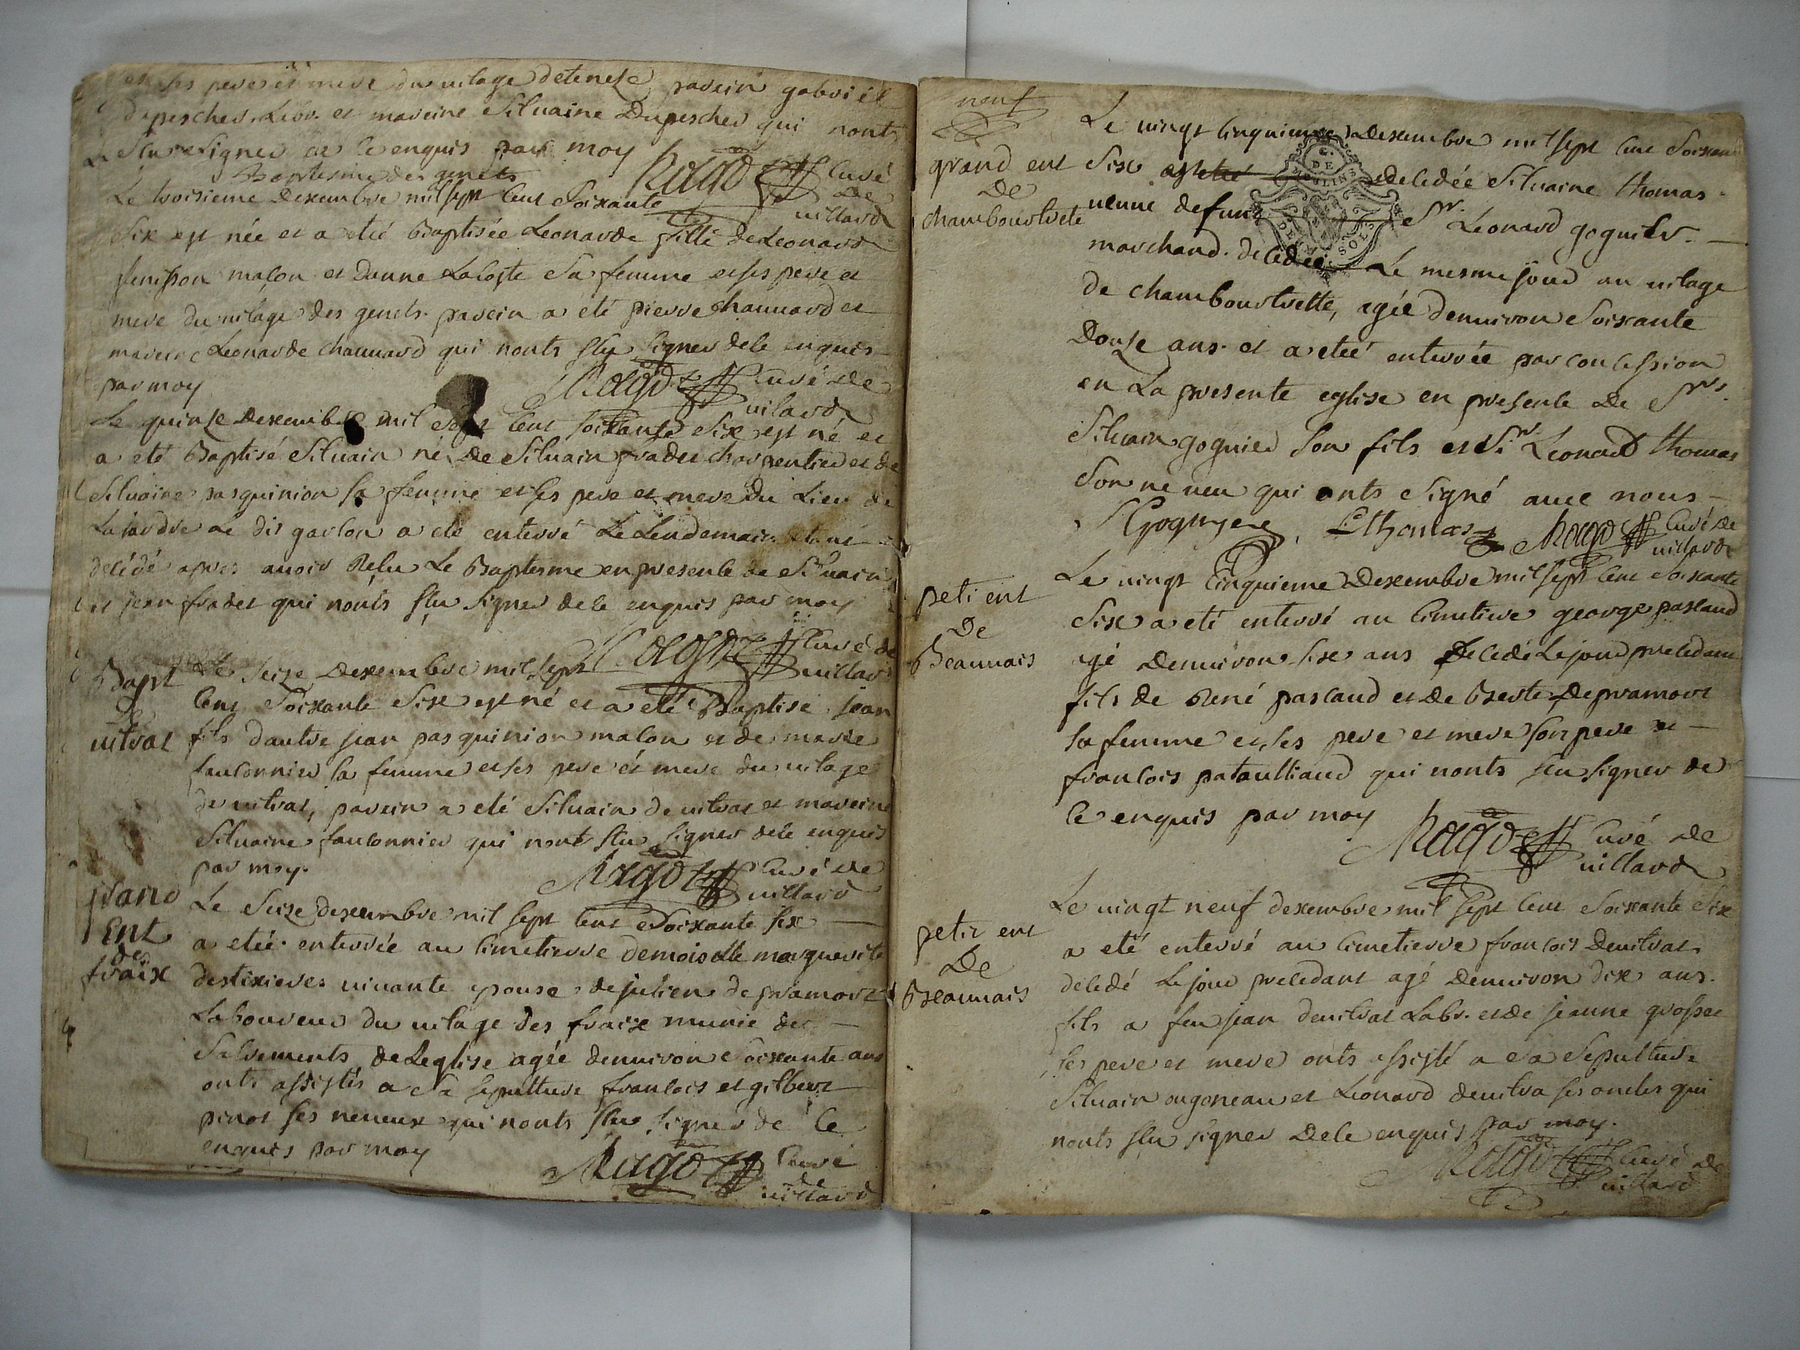 et ses pere et mere du vilage de parein gabriel
Dupescher Labr. et mareine Silvaine Dupescher qui nonts
sceu signer de ce enquis par moy Ragot curé
Baptesme des genets De
villard
Le troisieme Dexembre mil sept cent soixante
six est née et a eteé Baptisée Leonarde fille de Leonard
macon et danne Lacoste sa femme et ses pere et
mere du vilage des genets parein a eté pierre chaunard et
mareine Leonarde chaunard qui nonts sceu signer de ce enquis
par moy Ragot curé de
vilard
Le quinse Dexembre mil sept cent soixante six est né et
a eté Baptisé Silvain né de Silvain prader charpentier et de
Silvaine pasquinion sa femme et ses pere et mere du Lieu de
Lajardre ce dit garcon a eté enterré Le Lendemain etant
décédé apres avoir Recu Le Baptesme en presence de Silvain
et jean prader qui nonts sceu signer de ce enquis par moy
Ragot curé de
villard
Bapt
de
vitrat
Le seize Dexembre mil sept
cent soixante six est né et a eté Baptisé jean
fils dautre jean pasquinion macon et de marie
fauconnier sa femme et ses pere et mere du vilage
de vitrat, parein a eté Silvain de vitrat et mareine
Silvaine fauconnier qui nont sceu signer de ce enquis
par moy. Ragot curé de
villard
grand
Ent
des
fraix
Le Seize dexembre mil sept cent soixante six
a eteé enterrée au cimetierre demoiselle marguerite
destixieres vivante epouse de julien de pramort
Laboureur du vilage des fraix munie des
Sacrements de Leglise agée denviron soixante ans
onts assistés a sa sepulture francois et gilbert
pinot ses neveux qui nonts sceu signer de ce
enquis par moy Ragot curé
de
villard
neuf
grand ent
De
chambourtrete
Le vingt cinquieme Dexembre mil sept cent soixante
six decedée Silvaine thomas
veuve defunt Sr. Léonard goguier
marchand. decedée Le mesme jour au vilage
de chambourtrette, agée denviron soixante
Douse ans. et a eteé enterrée par concession
en La presente eglise en presence de Srs.
Silvain goguier son fils et Sr. Léonard thomas
Son neveu qui onts signé avec nous
Goguyere Lthomas Ragot curé de
villard
petit ent
De
Beauvais
Le vingt cinquieme Dexembre mil sept cent soixante
six a eté enterré au cimetiere george pascaud
agé denviron six ans Decedé Le jour precedant
fils de René pascaud et de Berte de pramort
sa femme et ses pere et mere son pere et
francois pataulliaud qui nonts sceu signer de
ce enquis par moy Ragot curé de
villard
petit ent
De
Beauvais
Le vingt neuf dexembre mil sept cent soixante six
a eté enterré au cimetierre francois Devitrat
décedé Le jour precedant agé denviron dix ans.
fils a feu jean devitrat Labr. et de jeanne grosset
ses pere et mere onts assisté a sa sepulture
Silvain augoneau et Léonard devitra ses oncles qui
nonts sceu signer de ce enquis par moy.
Ragot curé de
villard